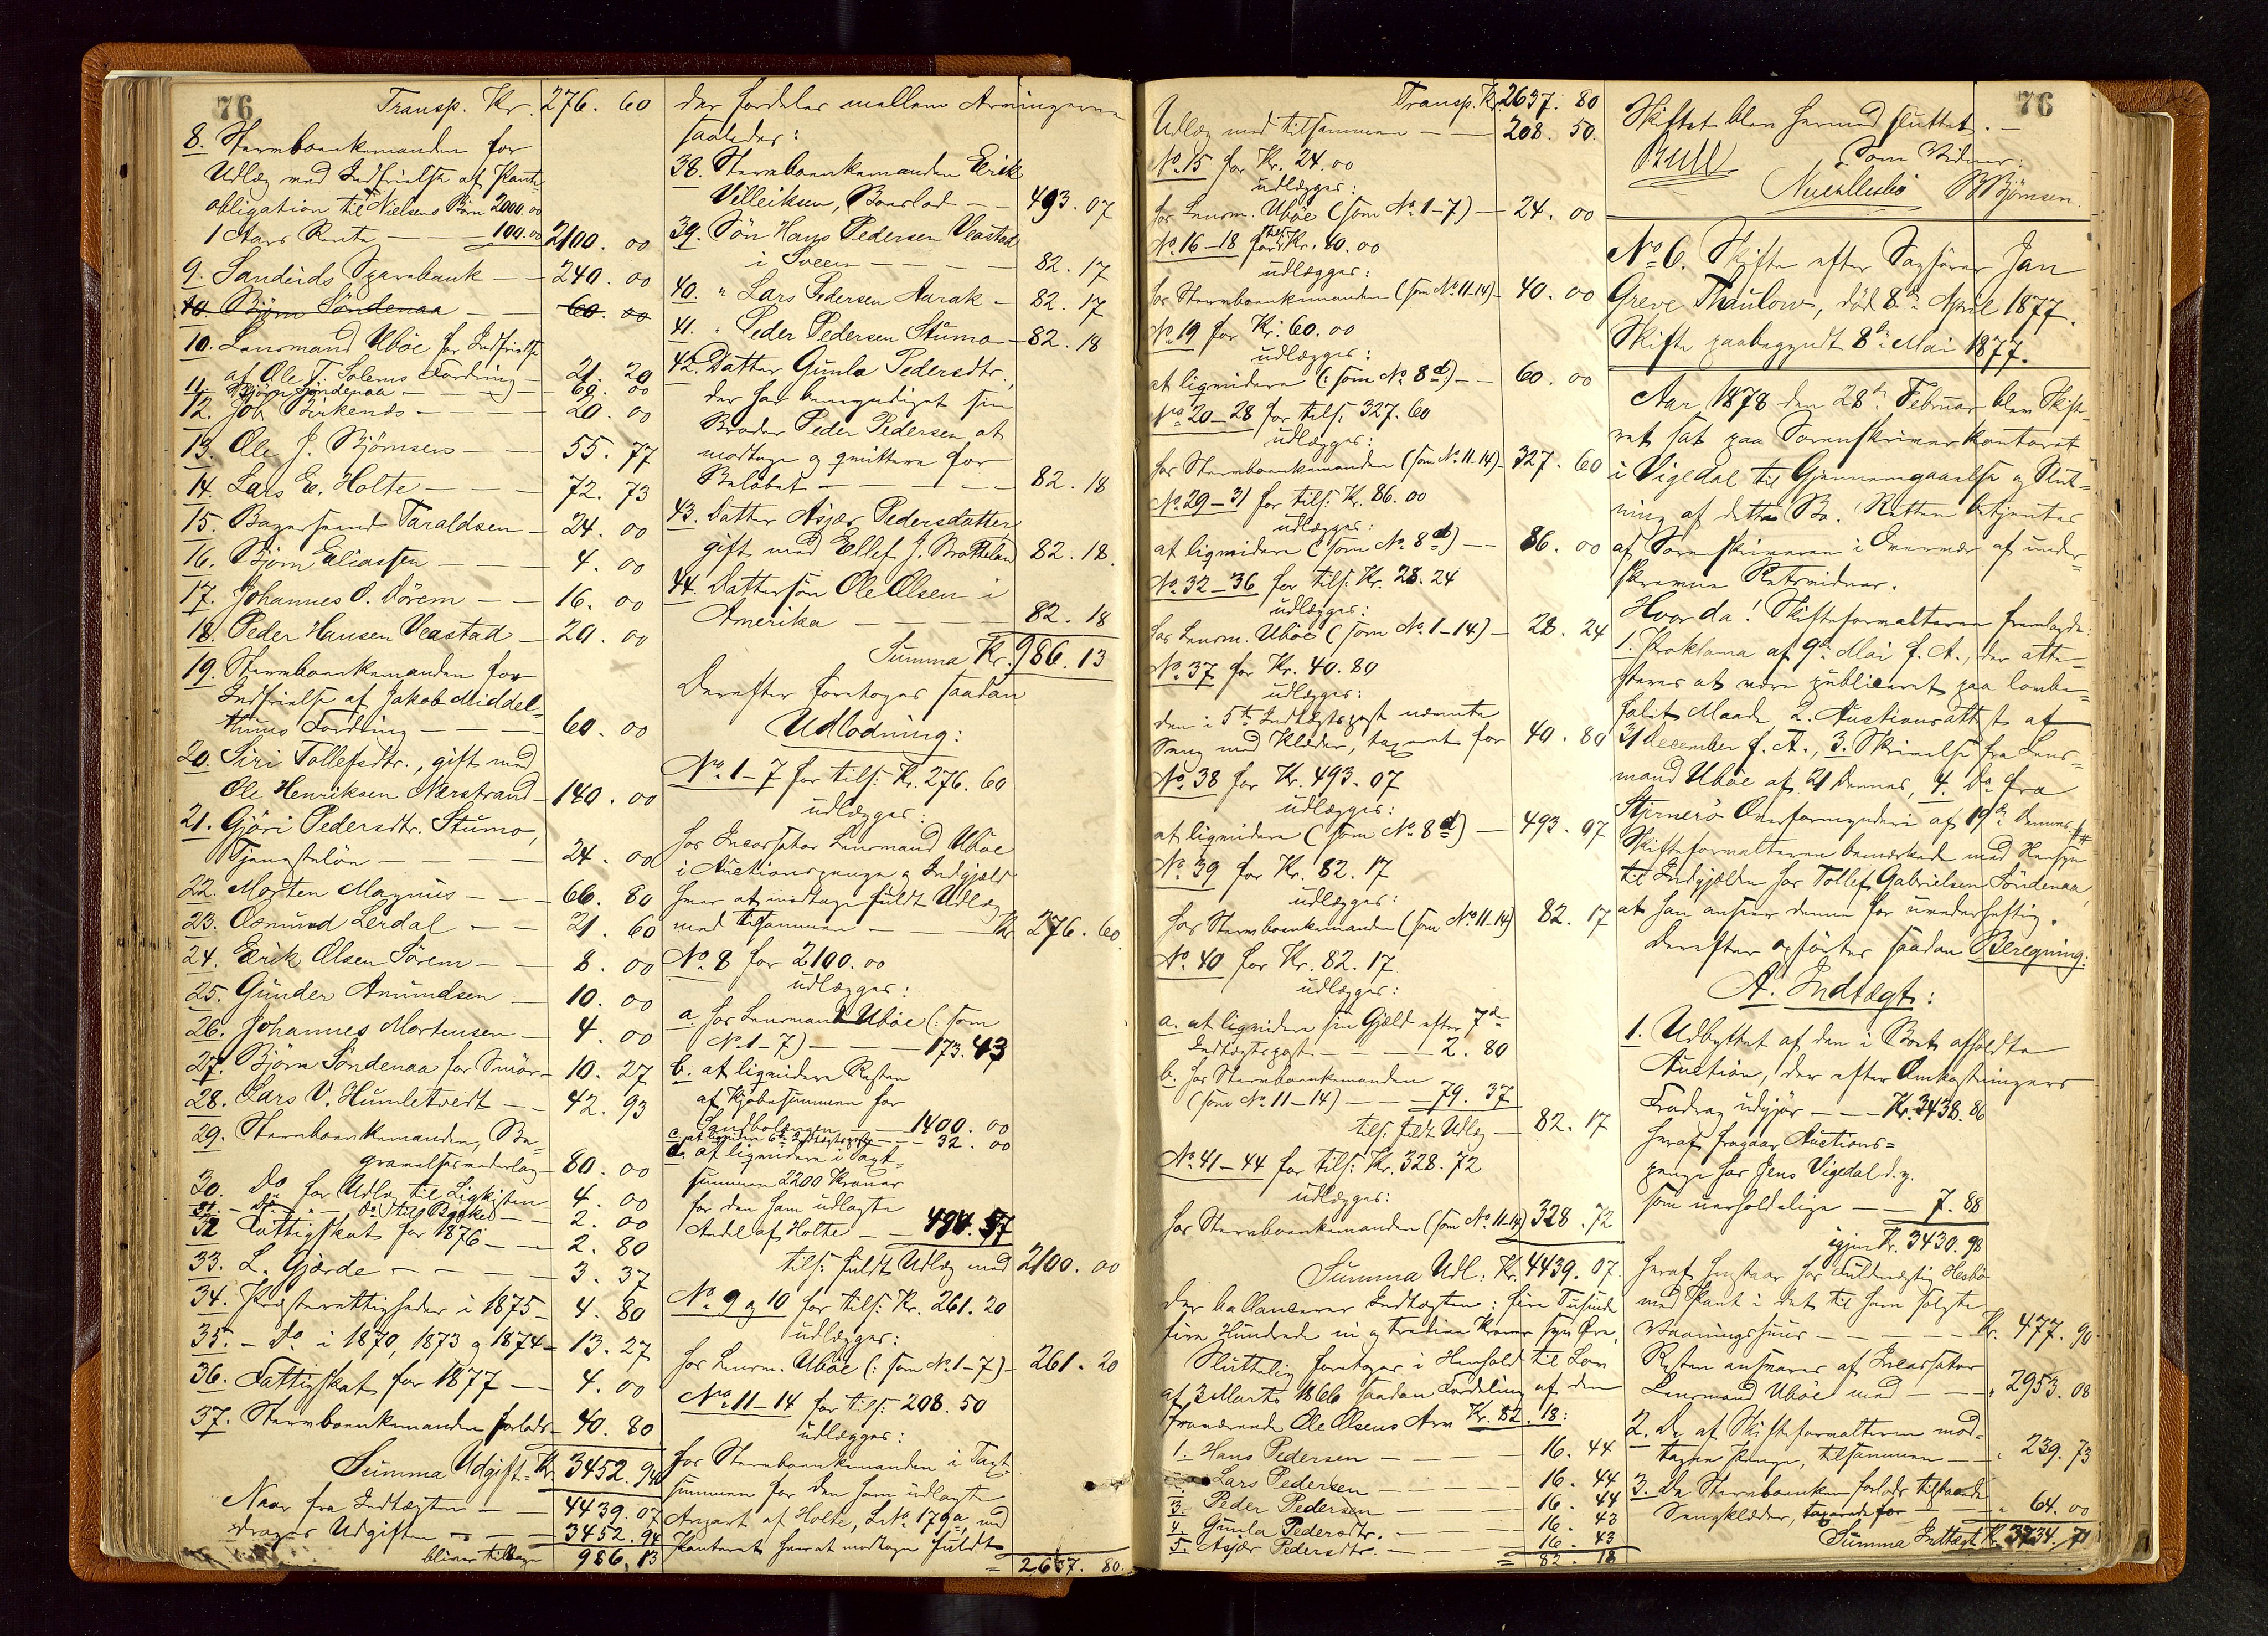 76
Transp. Kr. 276. 60
8. Stervboenkemanden for
Udlæg med Indfrielse af Pante-
obligation til Nielsens Børn 2000.00
1 Aars Rente — 100.00 2100. 00
9. Sandeids Sparebank — 240. 00
10 Bjørn Söndenaa — 60. 00
10. Lensmand Uböe for Indfrielse
af Ole T. Solems Fordring — 21. 20
11. Bjørn Söndenaa — 60. 00
12. Job Birkends — 20. 00
13. Ole J. Bjørnsen — 55. 77
14. Lars E. Holte — 72. 73
15. Taraldsen — 24. 00
16. Bjørn Eliassen — 4. 00
17. Johannes O. Dörem — 16. 00
18. Peder Hansen Veastad — 20. 00
19. Stervboenkemanden for
Indfrielse af Jakob Middel-
thuns Fordring — 60. 00
20. Siri Tollefsdtr., gift med
Ole Henriksen Nærstrand — 140. 00
21. Gjöri Pedersdtr. Stumo,
Tjenesteløn — 24. 00
22. Morten Magnus — 66. 80
23. Osmund Lerdal — 21. 60
24. Eerik Olsen Sörem — 8. 00
25. Gunder Amundsen — 10. 00
26. Johannes Mortensen — 4. 00
27. Bjørn Söndenaa for Smør — 10. 27
28. Lars V. Humletvedt — 42. 93
29. Stervboenkemanden, Be-
gravelsesvederlag — 80. 00
30. Do for Udlæg til Ligkisten — 4. 00
31. — Do — " — Do til — 2. 00
32 Fattigskat for 1876 — 2. 80
33. L. Gjerde — 3. 37
34. Præsterettigheder i 1875 — 4. 80
35. — Do i 1870, 1873 og 1874 — 13. 27
36. Fattigskat for 1877 — 4. 00
37. Stervboenkemanden forlods — 40. 80
Summa Udgift Kr. 3452. 94
Naar fra Indtægten — 4439. 07
drages Udgiften — 3452. 94
bliver tilbage 986. 13
der fordeles mellem Arvingerne
saaledes:
38. Stervboenkemanden Eerik
Villeiksen, — 493. 07
39. Søn Hans Pedersen Veastad
i Sveen — 82. 17
40. " Lars Pedersen Aarak — 82. 17
41. " Peder Pedersen Stumo — 82. 18
42. Datter Gunla Pedersdtr.,
der har bemyndiget sin
Broder Peder Pedersen at
modtage og qvittere for
Beløbet — 82. 18
43. Datter Asjær Pedersdatter
gift med Ellef J. 82. 18.
44. Dattersøn Ole Olsen i
Amerika — 82. 18
Summa Kr. 986. 13
Derefter foretoges saadan
Udlodning:
No. 1-7 for tils: Kr. 276. 60
udlægges:
hos Incassator Lensmand Uböe
i Auctionspenge og Indgjæld
hvor at modtage fuldt Udlæg
med tilsammen — Kr. 276. 60
No. 8 for 2100. 00
udlægges:
a. hos Lensmand Uböe (: som
No. 1-7) — 173. 43
b. at liqvidere Resten
af Kjøbesummen for
— 1400. 00
c. at liqvidere 6te Indtægtspost — 32. 00
d. at liqvidere i Taxt-
summen 2200 Kroner
for den ham udlagte
Andel af Holte — 494. 57
tils: fuldt Udlæg med 2100. 00
No. 9 og 10 for tils: Kr. 261. 20
udlægges:
hos Lensm. Uböe (: som No. 1-7) — 261. 20
No. 11-14 for tils: 208. 50
udlægges:
hos Stervboenkemanden i Taxt-
summen for den ham udlagte
Anpart af Holte, L.No. 179a med
Panteret hvorat modtage fuldt
2637. 80.
76
Transp. Kr. 2637. 80
Udlæg med tilsammen — 208. 50.
No. 15 for Kr. 24. 00
udlægges:
hos Lensm. Uböe (som No. 1-7) — 24. 00
No. 16-18 for tils: Kr. 40. 00
udlægges:
hos Stervboenkemanden (som No. 11-14) — 40. 00
No. 19 for Kr. 60. 00
udlægges:
at liqvidere (: som No. 8 d) — 60. 00
No. 20-28 for tils: 327. 60
udlægges:
hos Stervboenkemanden (som No. 11-14) — 327. 60
No. 29-31 for tils: Kr. 86. 00
udlægges:
at liqvidere (som No. 8 d) — 86. 00
No. 32-36 for tils: Kr. 28. 24
udlægges:
hos Lensm. Uböe (som No. 1-14) — 28. 24
No. 37 for Kr. 40. 80
udlægges:
den i 5te Indtægtspost nævnte
Seng med Klæder, taxeret for 40. 80
No. 38 for Kr. 493. 07
udlægges:
at liqvidere (som No. 8 d) — 493. 07
No. 39 for Kr. 82. 17
udlægges:
hos Stervboenkemanden (som No. 11-14) 82. 17
No. 40 for Kr. 82. 17
udlægges:
a. at liqvidere sin Gjæld efter 7de
Indtægtspost — 2. 80
b. hos Stervboenkemanden
(som No. 11-14) — 79. 37
tils: fuldt Udlæg — 82. 17
No. 41-44 for tils: Kr. 328. 72
udlægges:
hos Stervboenkemanden (som No. 11-14) 328. 72
Summa Udl: Kr. 4439. 07.
der ballancerer Indtægten: fire Tusinde
fire Hundrede ni og tredive Kroner syv Øre.
Sluttelig foretoges i Henhold til Lov
af 3 Marts 1866 saadan Fordeling af den
fraværende Ole Olsens Arv Kr. 82. 18:
1. Hans Pedersen — 16. 44
2. Lars Pedersen — 16. 44
3. Peder Pedersen — 16. 44
4. Gunla Pedersdtr. — 16. 43
5. Asjær Pedersdtr. — 16. 43
= 82. 18
Skiftet blev hermed sluttet. —
Bull
Som Vidner:
BBjørnsen.
No 6. Skifte efter Sagfører Jan
Greve Thaulow, død 8de April 1877.
Skifte paabegyndt 8de Mai 1877.
Aar 1878 den 28de Februar blev Skifte-
ret sat paa Sorenskriverkontoret
i Vigedal til Gjennemgaaelse og Slut-
ning af dette Bo. Retten betjentes
af Sorenskriveren i Overvær af under-
skrevne Retsvidner.
Hvorda! Skifteforvalteren fremlagde:
1. Proklama af 9de Mai f. A., der atte-
steres at være publiceret paa lovbe-
falet Maade, 2. Auctionsattest af
31 December f. A., 3. Skrivelse fra Lens-
mand Uböe af 21 Dennes, 4. Do fra
Stjernerö Overformynderi af 19de Dennes
Skifteforvalteren bemærkede med Hensyn
til Indgjælden hos Tollef Gabrielsen Söndenaa,
at han anseer denne for uvederheftig.
Derefter opførtes saadan Beregning:
A. Indtægt:
1. Udbyttet af den i Boet afholdte
Auction, der efter Omkostningers
Fradrag udgjør — Kr. 3438. 86
heraf fragaar Auctions-
penge hos Jens Vigedal d.y.
som uerholdelige — 7. 88
igjen Kr. 3430. 98
heraf henstaar hos Fuldmægtig Hesbö
med Pant i det til ham solgte
Vaaningshuus — Kr. 477. 90
Resten ansvares af Incassator
Lensmand Uböe med — " 2953. 08
2. De af Skifteforvalteren mod-
tagne Penge, tilsammen — " 239. 73
3. De Stervboenken forlods tilstaaede
Sengklæder, taxerede for — " 64. 00
Summa Indtægt Kr. 3734. 71